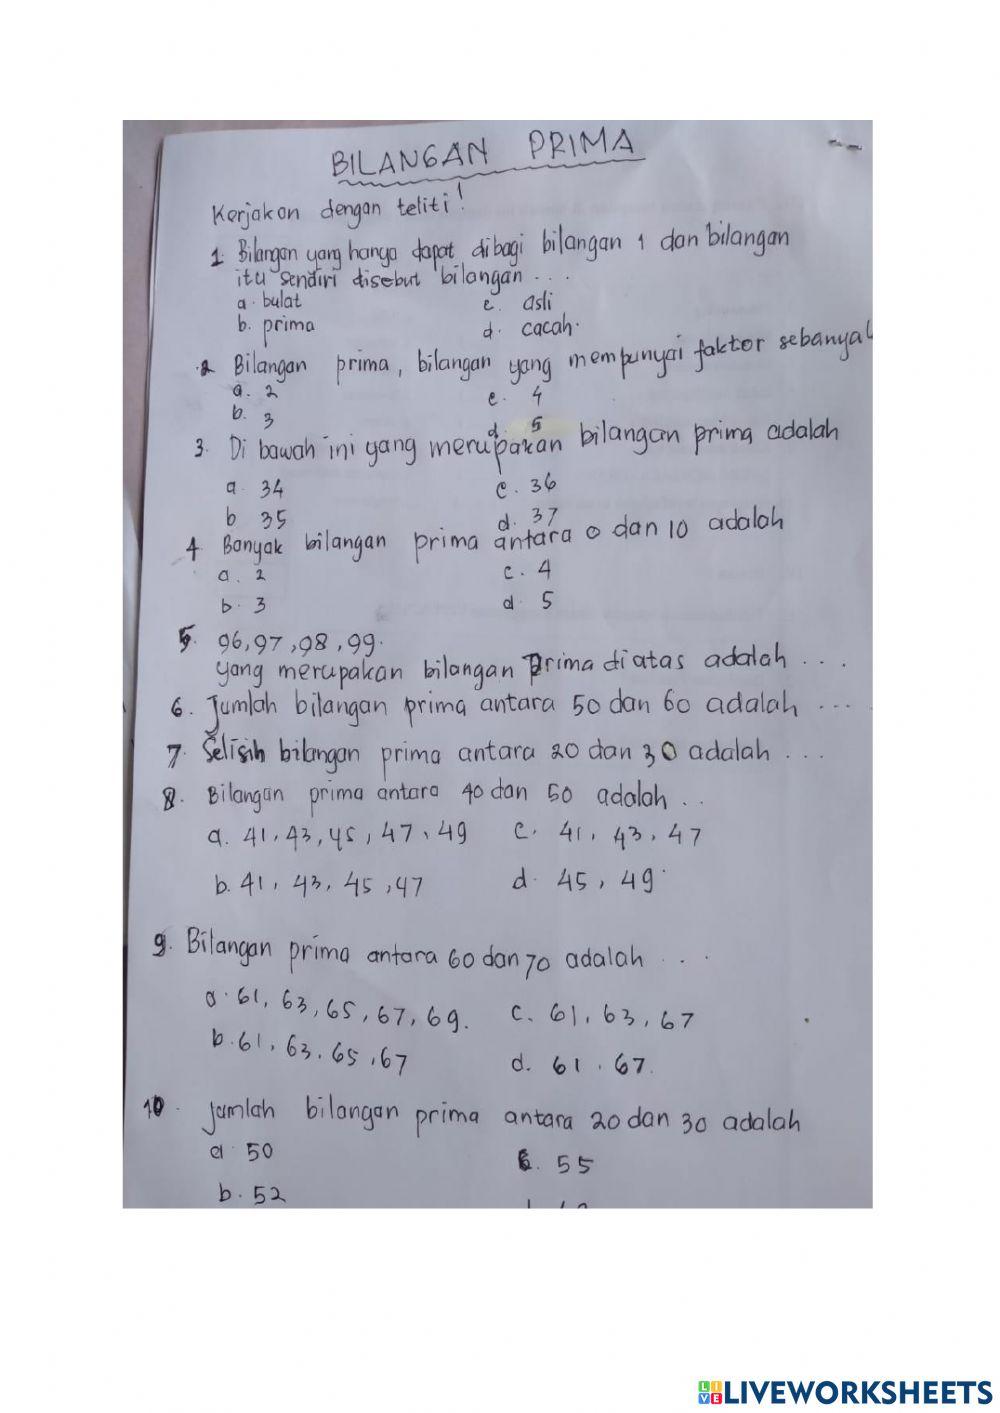 BILANGAN PRIMA
Kerjakan dengan teliti!
1. Bilangan yang hanya dapat dibagi bilangan 1 dan bilangan
itu sendiri disebut bilangan ...
a. bulat c. asli
b. prima d. cacah.
2 Bilangan prima, bilangan yang mempunyai faktor sebanyak
a. 2 c. 4
b. 3 d. 5
3. Di bawah ini yang merupakan bilangan prima adalah
a. 34 c. 36
b 35 d. 37
4. Banyak bilangan prima antara 0 dan 10 adalah
a. 2 c. 4
b. 3 d. 5
5. 96, 97, 98, 99.
yang merupakan bilangan Prima diatas adalah ...
6. Jumlah bilangan prima antara 50 dan 60 adalah ...
7. Selisih bilangan prima antara 20 dan 30 adalah ...
8. Bilangan prima antara 40 dan 50 adalah ..
a. 41, 43, 45, 47, 49 c. 41, 43, 47
b. 41, 43, 45, 47 d. 45, 49
9. Bilangan prima antara 60 dan 70 adalah ...
a. 61, 63, 65, 67, 69. c. 61, 63, 67
b. 61, 63, 65, 67 d. 61, 67.
10. Jumlah bilangan prima antara 20 dan 30 adalah
a. 50 c. 55
b. 52
LIVEWORKSHEETS